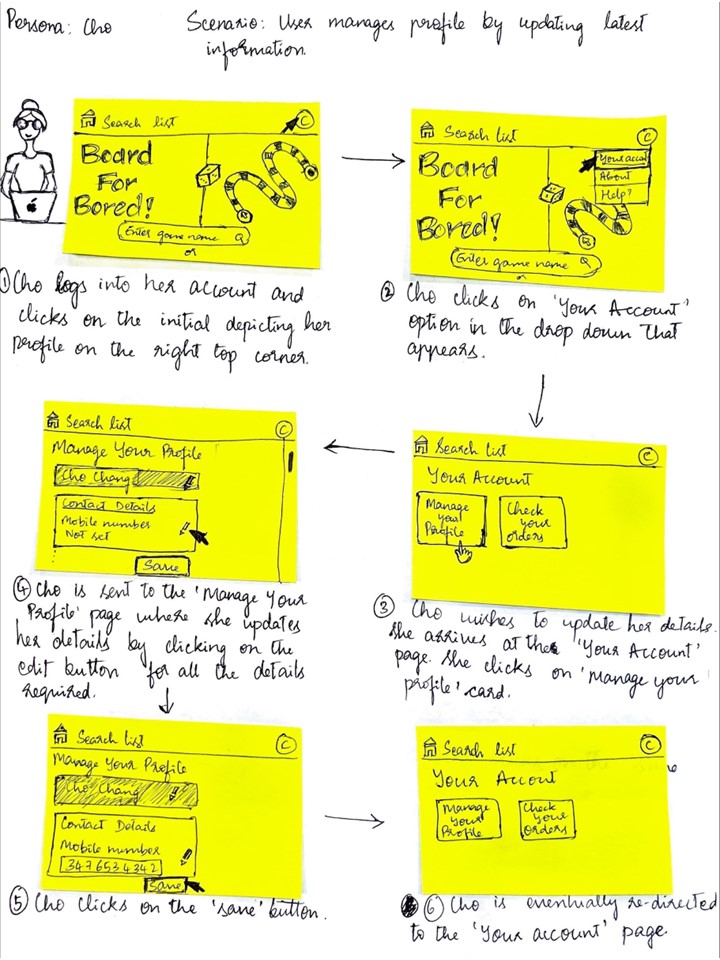 Persona: Cho
Scenario: User manages profile by updating latest
information.
Search list
C
Board
For
Bored!
Enter game name
or
① Cho logs into her account and
clicks on the initial depicting her
profile on the right top corner.
Search list
C
Board
For
Bored!
Your accou
About
Help?
Enter game name
or
② Cho clicks on 'Your Account'
option in the drop down that
appears.
Search list
C
Your Account
Manage
your
Profile
Check
your
orders
③ Cho wishes to update her details.
She arrives at the 'Your Account'
page. She clicks on 'Manage your
profile' card.
Search list
C
Manage Your Profile
Cho Chang
Contact Details
Mobile number
Not set
Save
④ Cho is sent to the 'Manage Your
Profile' page where she updates
her details by clicking on the
edit button for all the details
required.
Search list
C
Manage Your Profile
Cho Chang
Contact Details
Mobile number
3476534342
Save
⑤ Cho clicks on the 'save' button.
Search list
C
Your Accout
Manage
Your
Profile
Check
Your
Orders
⑥ Cho is eventually re-directed
to the 'Your account' page.